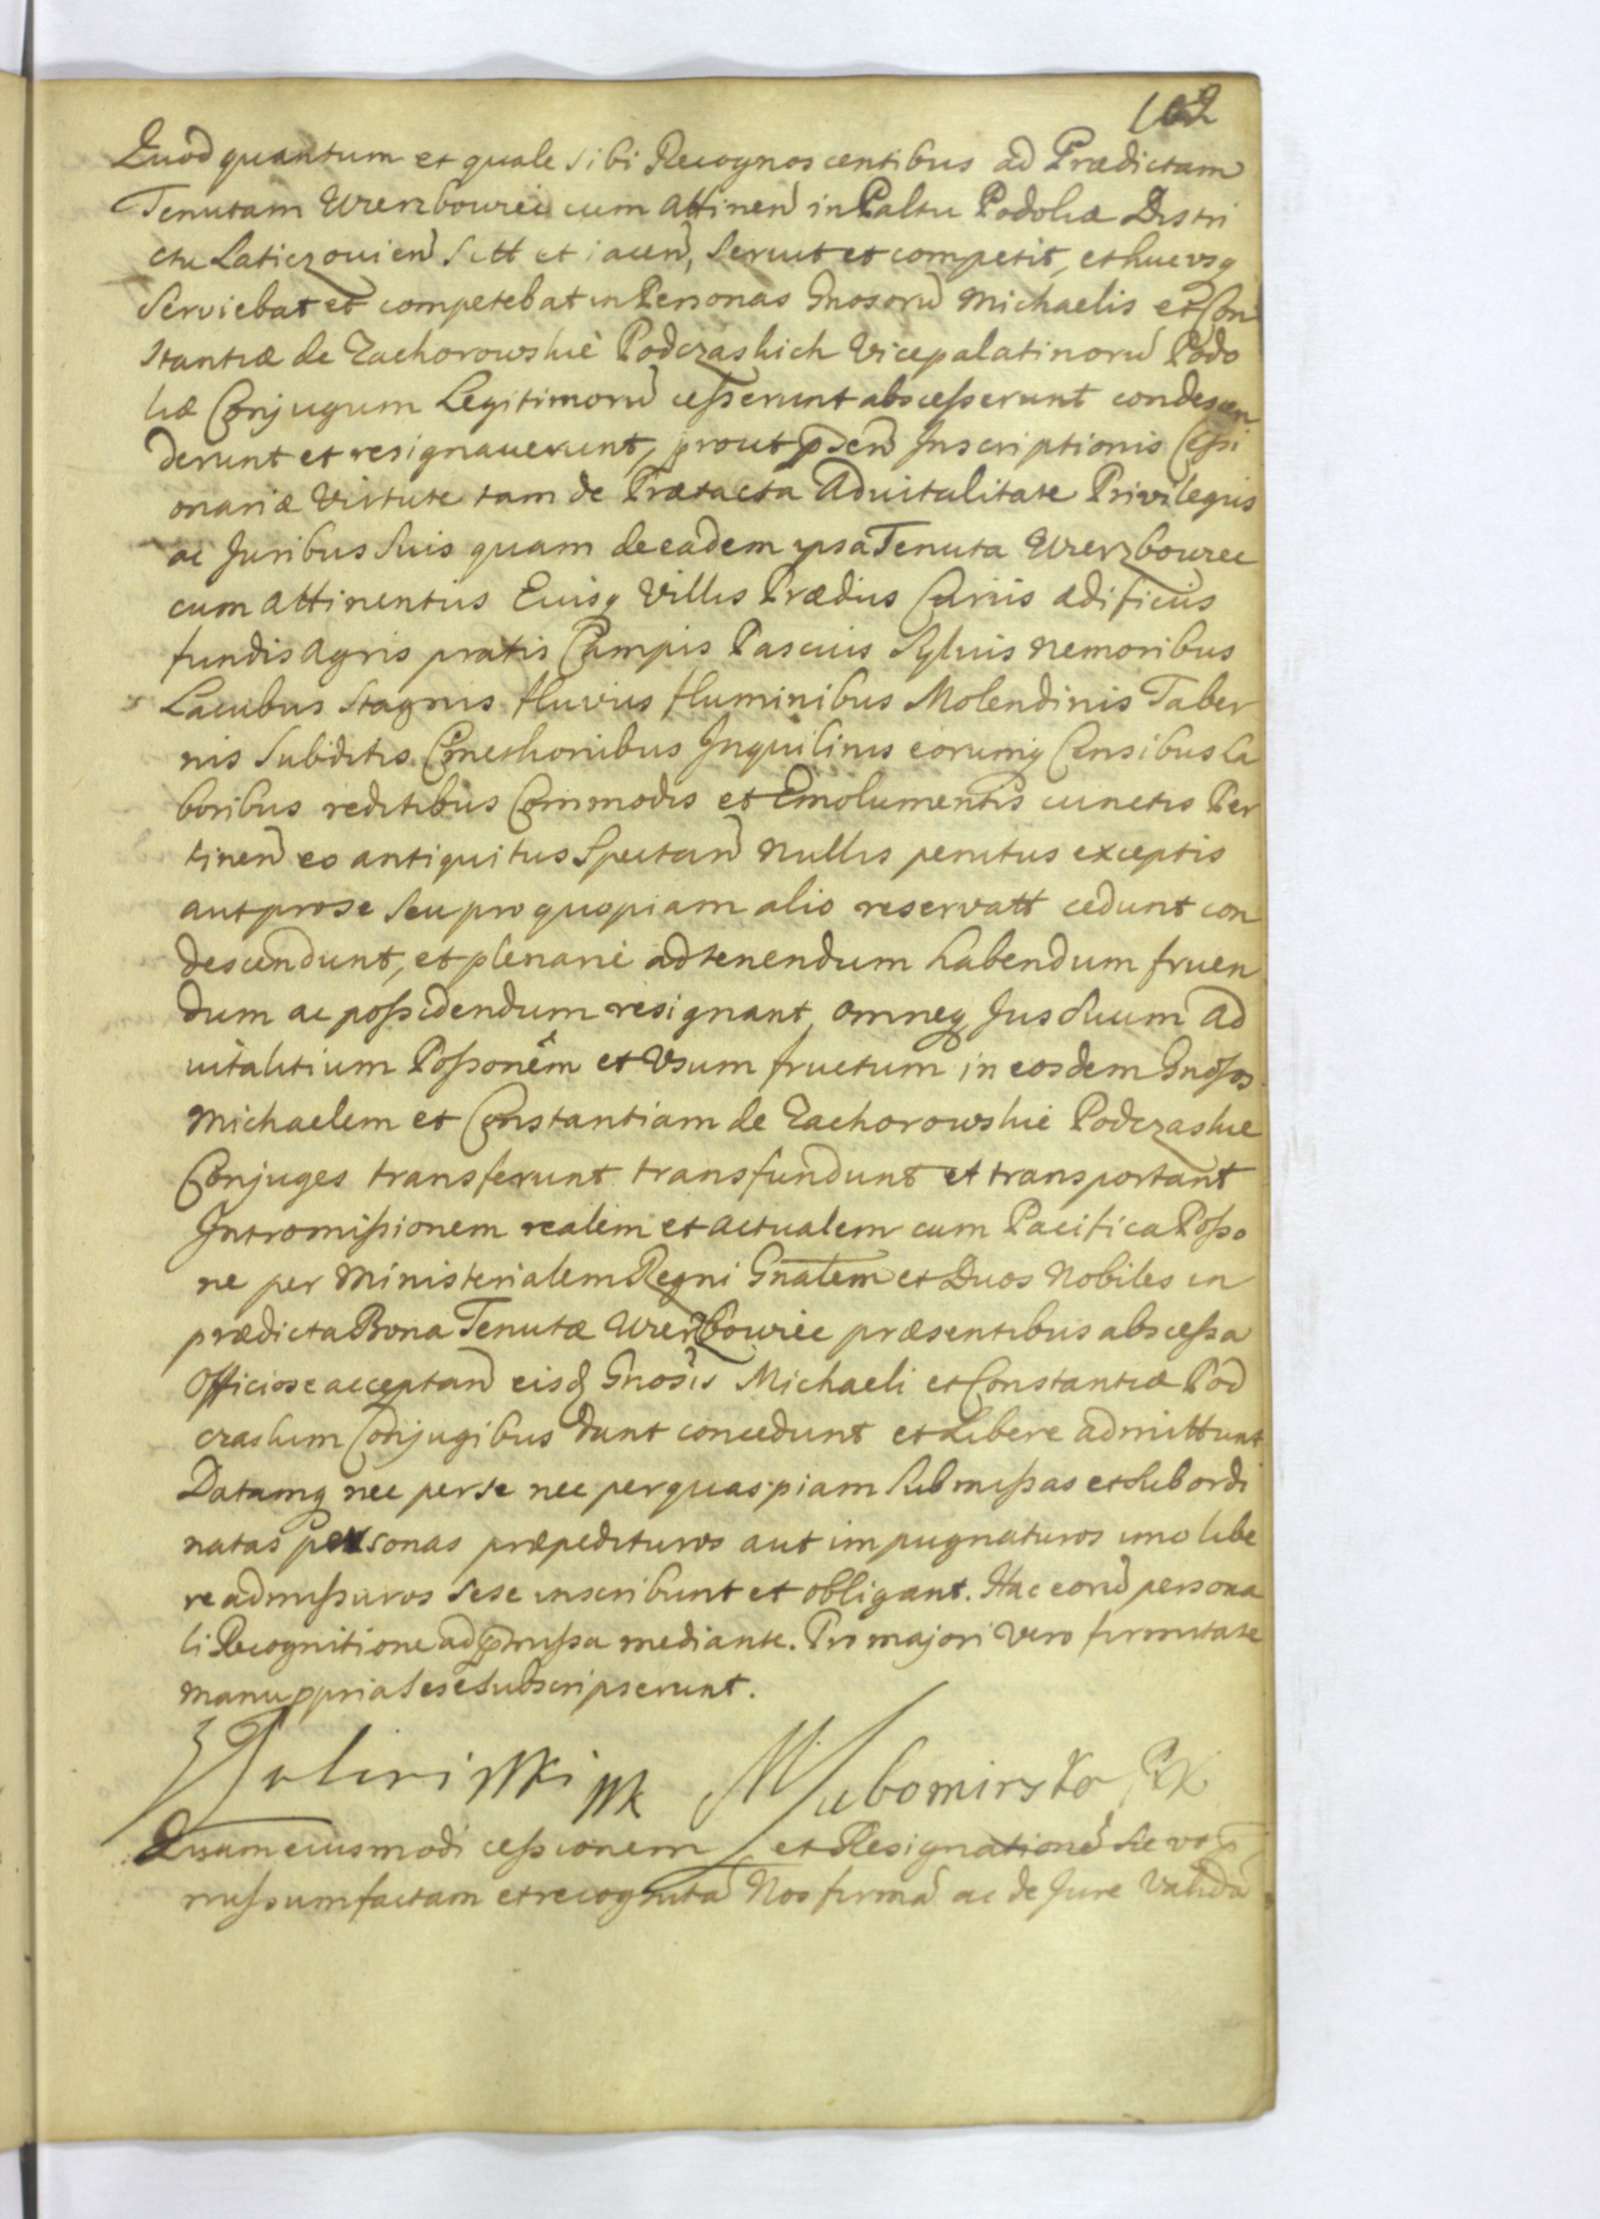 102
Quod quantum et quale sibi Recognoscentibus ad Prædictam
Tenutam Wierzbowiec cum attinen in Paltu Podoliæ Distri
ctu Laticzovien sitt et iacen, servit et competit, et hucusq
Serviebat et competebat in Personas Gnosoru Michaelis et Con
stantiæ de Zachorowskie Podczaskich Vicepalatinoru Podo
liæ Conjugum Legitimoru cesserunt abscesserunt condescen
derunt et resignaverunt, prout psen Inscriptionis Cessi
onariæ Virtute tam de Prætacta Advitalitate Privilegiis
ac Juribus suis quam de eadem ipsa Tenuta Wierzbowiec
cum attinentiis Eiusq Villis Prædiis Curiis ædificiis
fundis agris pratis Campis Pascuis Sylvis nemoribus
Lacubus stagnis fluviis fluminibus Molendinis Taber
nis Subditis Cmethonibus Inquilinis eorumq Censibus La
boribus reditibus Commodis et Emolumentis cunctis Per
tinen eo antiquitus Spectan Nullis penitus exceptis
aut pro se seu pro quopiam alio reservatt cedunt con
descendunt, et plenarie ad tenendum habendum fruen
dum ac possidendum resignant, omneq Jus suum ad
vitalitium Possonem et Usum fructum in eosdem Gnosos
Michaelem et Constantiam de Zachorowskie Podczaskie
Conjuges transferunt transfundunt et transportant
Intromissionem realem et actualem cum Pacifica Posso
ne per Ministerialem Regni Gnalem et Duos Nobiles in
prædicta Bona Tenutæ Wierzbowiec præsentibus abscessa
Officiose acceptan eisd Gnosis Michaeli et Constantiæ Pod
czaskim Conjugibus dant concedunt et Libere admittunt
Datamq nec per se nec per quaspiam submissas et subordi
natas personas præpedituros aut impugnaturos imo libe
re admissuros sese inscribunt et obligant. Hac eoru persona
li Recognitione ad pmissa mediante. Pro majori vero firmitate
manu ppria sese subscripserunt.
MLubomirska
Quam eiusmodi cessionem et Resignatione
missum factam et recognita Nos firma ac de Jure valida